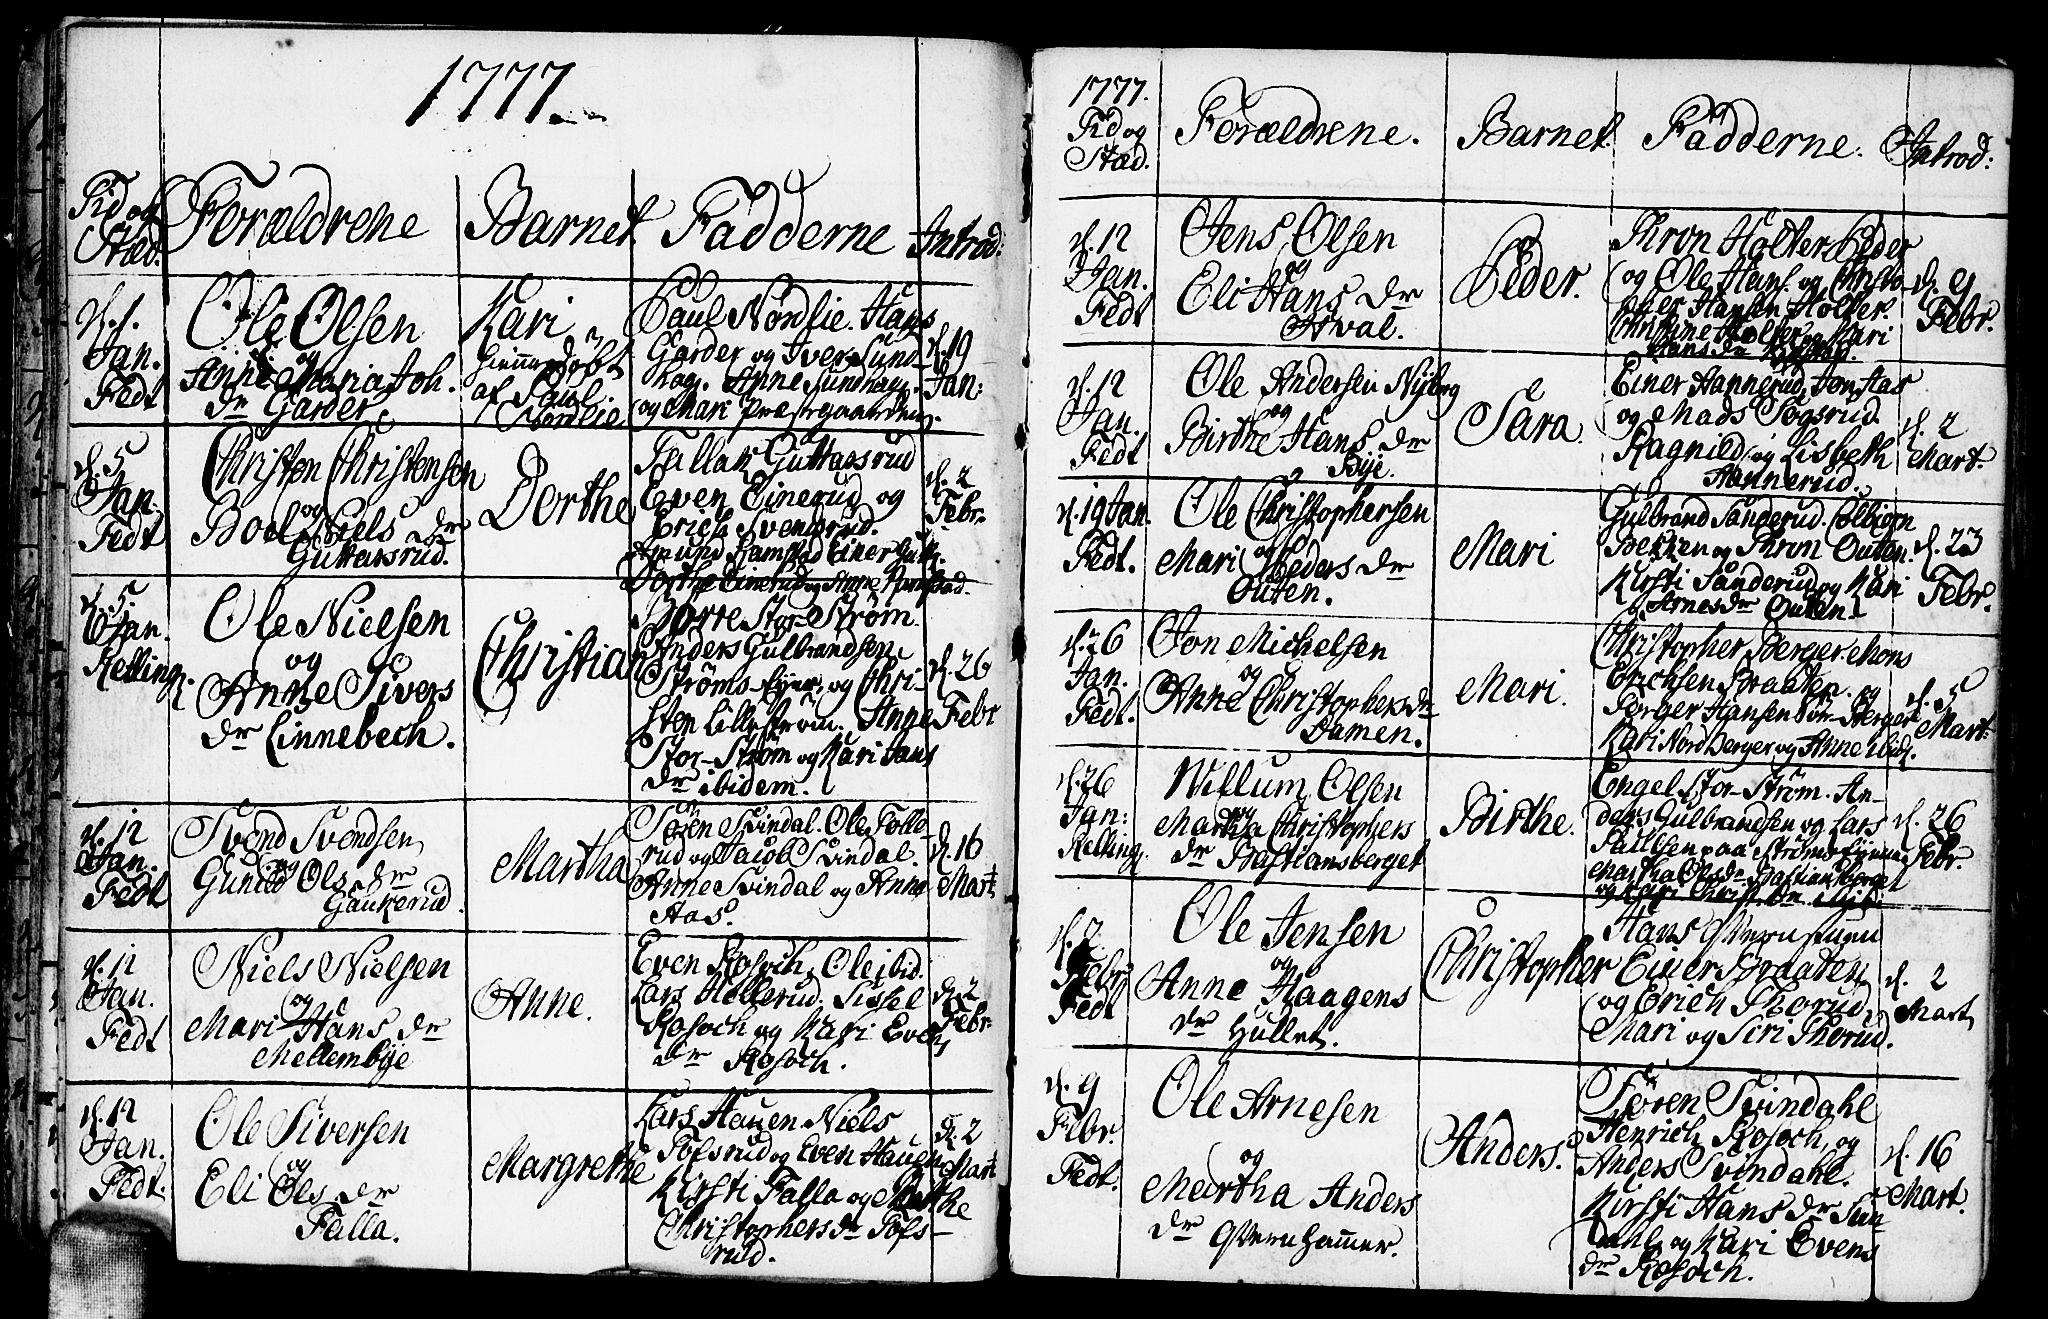 1777.
Tid og
Stæd.
Forældrene
Barnet.
Fadderne
Introd:
d. 1.
Jan.
Fedt
Ole Olsen
og
Anne Maria Joh.
dr Garder.
Kari
Hiemmedøbt
af Paul
Nordlie
Paul Nordlie. Hans
Garder og Iver Sund-
hag. Anne Sundhag.
og Mari Præstegaarden.
d. 19
Jan:
d. 5
Jan.
Fedt
Christen Christensen
og
Boel Niels dr
Guttersrud.
Dorthe
Tallak Guttersrud
Even Einerud og
Erich Svensrud.
Amund Ramstad Einer Gutt.
Dorthe Einerud og Anne Ramstad.
d. 2
Febr.
d. 5.
Jan.
Relling.
Ole Nielsen
og
Anne Sivers
dr Linnebech.
Christian
Børre Stor-Strøm.
Anders Gulbrandsen
Strøms-Eyer, og Chri-
sten Lillestrøm. Anne
Stor-Strøm og Kari Jans
dr ibidem.
d. 26
Febr
d. 12
Jan.
Fedt
Svend Svendsen
og
Gunild Ols dr
Gaukerud.
Martha
Søren Svindal. Ole Tolle-
rud og Jacob Svindal.
Anne Svindal og Anne
Aas.
d. 16
Mart.
d. 12
Jan.
Fedt
Niels Nielsen
og
Mari Hans dr
Mellembye
Anne.
Even Rosoch, Ole ibid.
Lars Hellerud. Sissel
Rosoch og Kari Evens
dr Rosoch.
d. 2
Febr:
d. 12
Jan.
Fedt.
Ole Siversen
og
Eli Ols dr
Falla.
Margrethe
Lars Hauen Niels
Tofsrud og Even Hauen
Kirsti Falla og Marthe
Christophers dr Tofs-
rud.
d. 2
Mart
1777.
Tid og
Stæd.
Forældrene.
Barnet.
Fadderne.
Introd:
d. 12
Jan.
Fedt
Jens Olsen
og
Eli Hans dr
Hval.
Peder.
Thron Holter Peder
og Ole Hans. og Christo-
pher Hansen Holter.
Christine Holter og Kari
Hans dr
d. 9
Febr.
d. 12
Jan.
Fedt
Ole Andersen Nyborg
og
Birthe Hans dr
Bye.
Sara.
Einer Hannerud, Jon Aas
og Mads Sogsrud.
Ragnild og Lisbeth
Hannerud.
d. 2
Mart.
d. 19 Jan.
Fedt.
Ole Christophersen
og
Mari Peders dr
Outen.
Mari
Gulbrand Sanderud. Colbjørn
Bekken og Thron Outen.
Kirsti Sanderud og Kari
Arnes dr Outen
d. 23
Febr.
d. 26
Jan.
Fedt.
Jon Michelsen
og
Anne Christophers dr
Damen.
Mari.
Christopher Berger. Mons
Erichsen Braaten. og
Børger Hansen Sør-Berger
Kari Nord Berger og Anne ibid.
d. 5
Mart:
d. 26
Jan:
Relling.
Willum Olsen
og
Martha Christophers
dr Bastiansberget
Birthe.
Engel Stor-Strøm. An-
ders Gulbrandsen og Lars
Paulsen paa Strøms-Eyerne
Martha Ols dr Bastiansberget
og Kari Christ. dr
d. 26
Febr.
d. 2.
Febr.
Fedt
Ole Jensen
og
Anne Haagens
dr Hullet.
Christopher
Hans
Einer Braaten
og Erich Thorud,
Mari og Siri Thorud.
d. 2
Mart
d. 9
Febr.
Fedt.
Ole Arnesen
og
Martha Anders
dr Qvernhammer.
Anders.
Søren Svindahl
Henrich Rosoch, og
Anders Svindahl.
Kirsti Hans dr Svin-
dahl og Kari Evens
dr Rosoch.
d. 16
Mart.